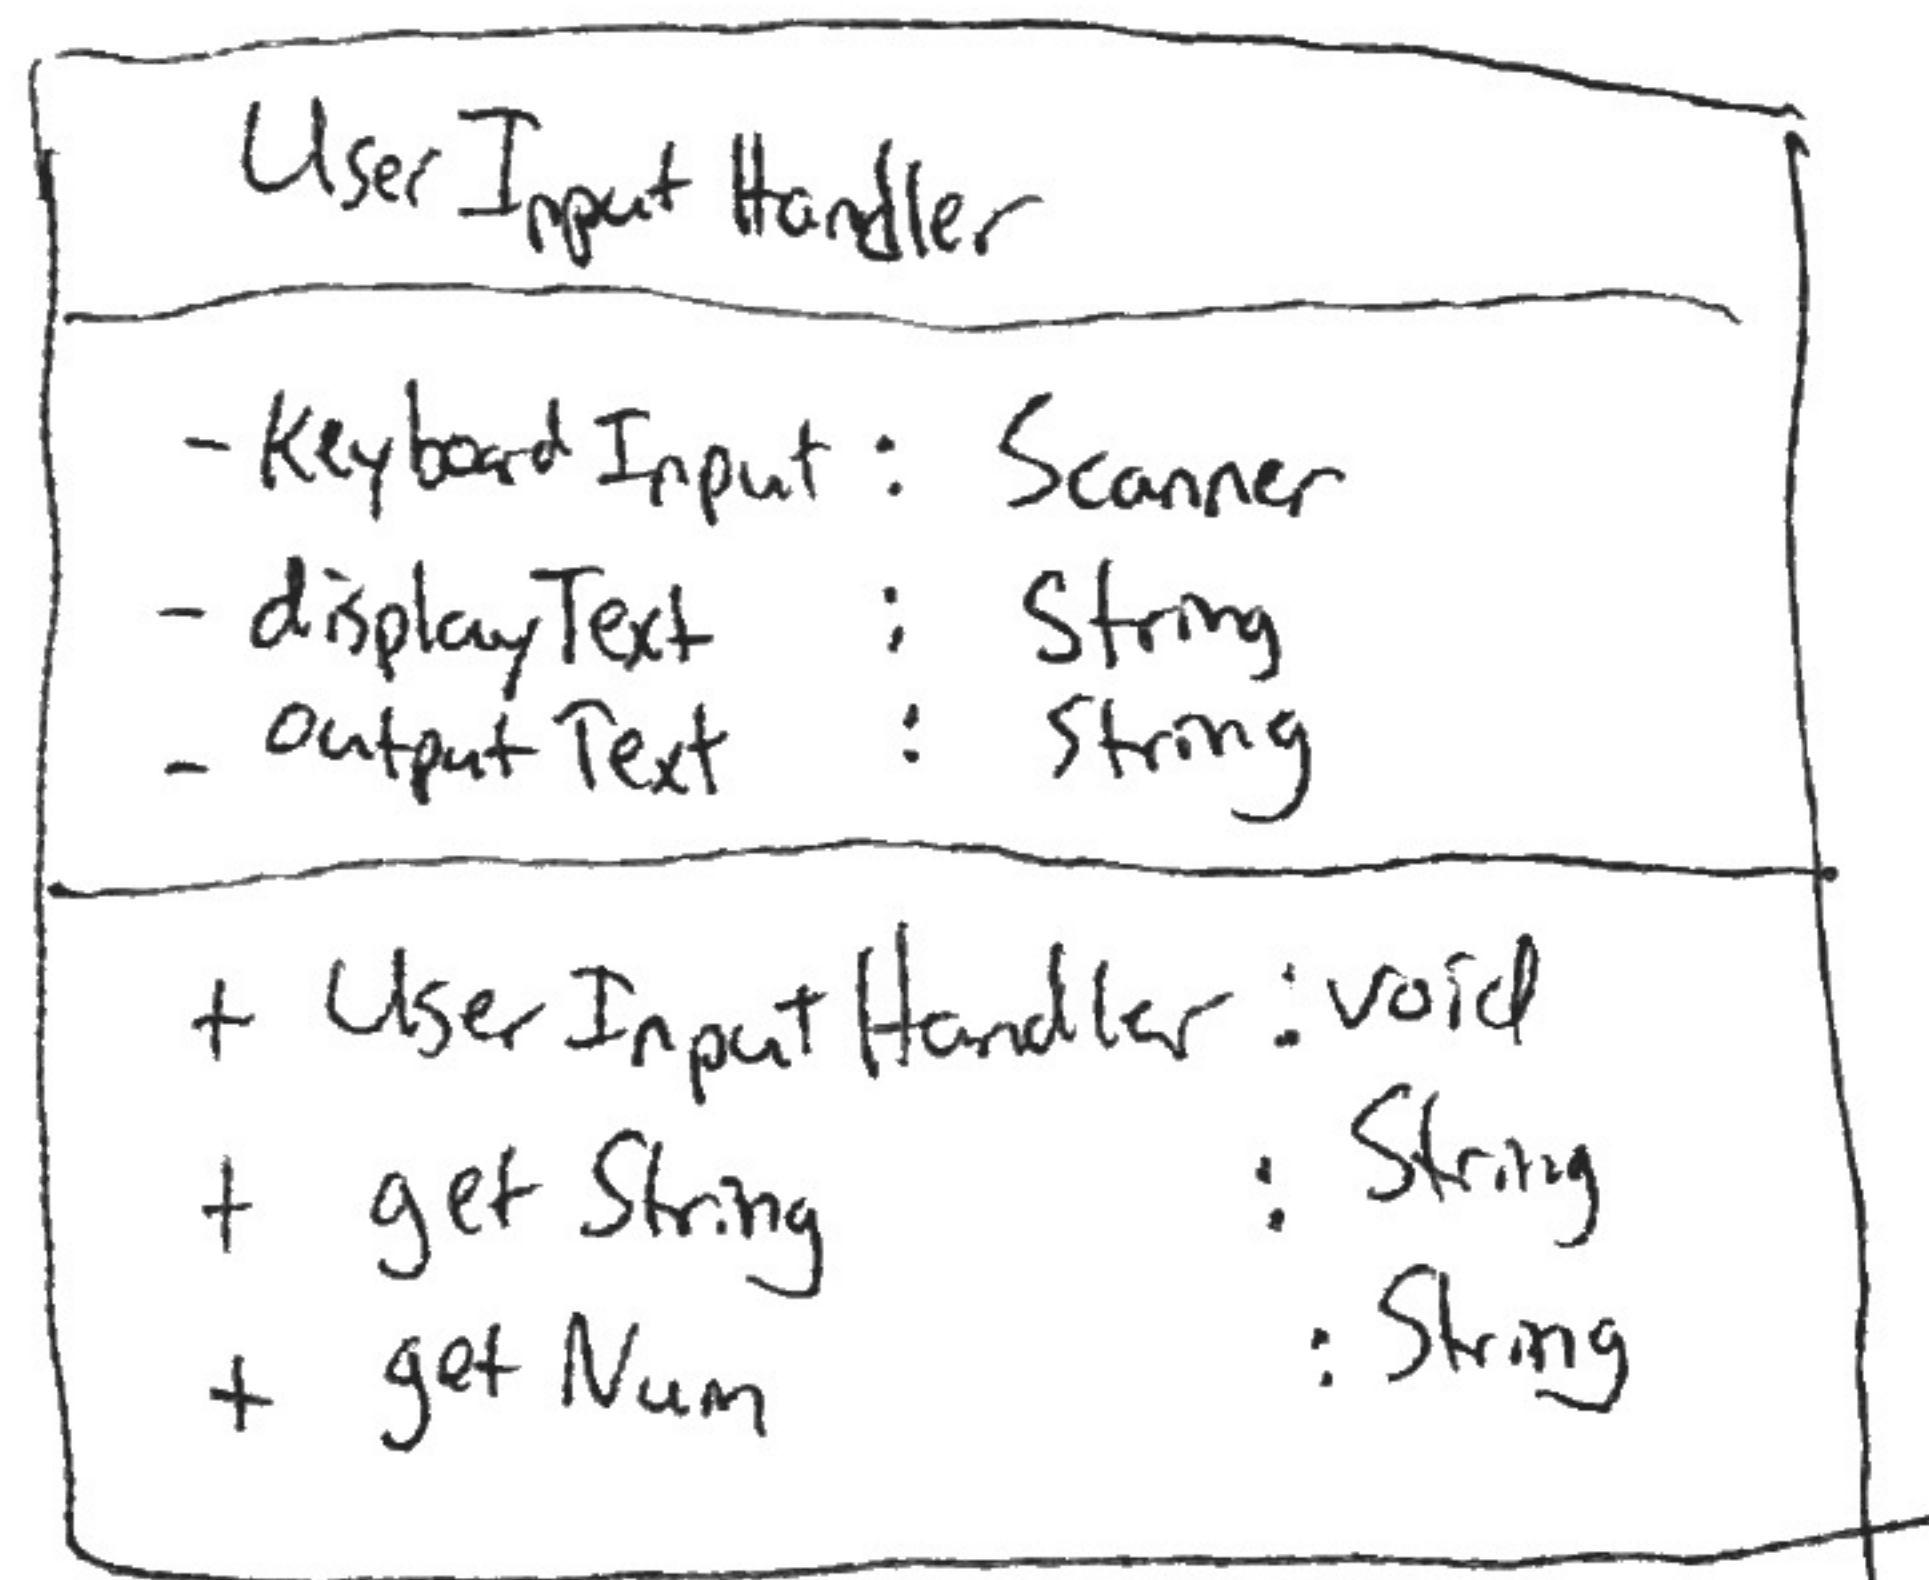 User Input Handler
- KeyboardInput : Scanner
- displayText : String
- outputText : String
+ UserInputHandler : void
+ getString : String
+ getNum : String